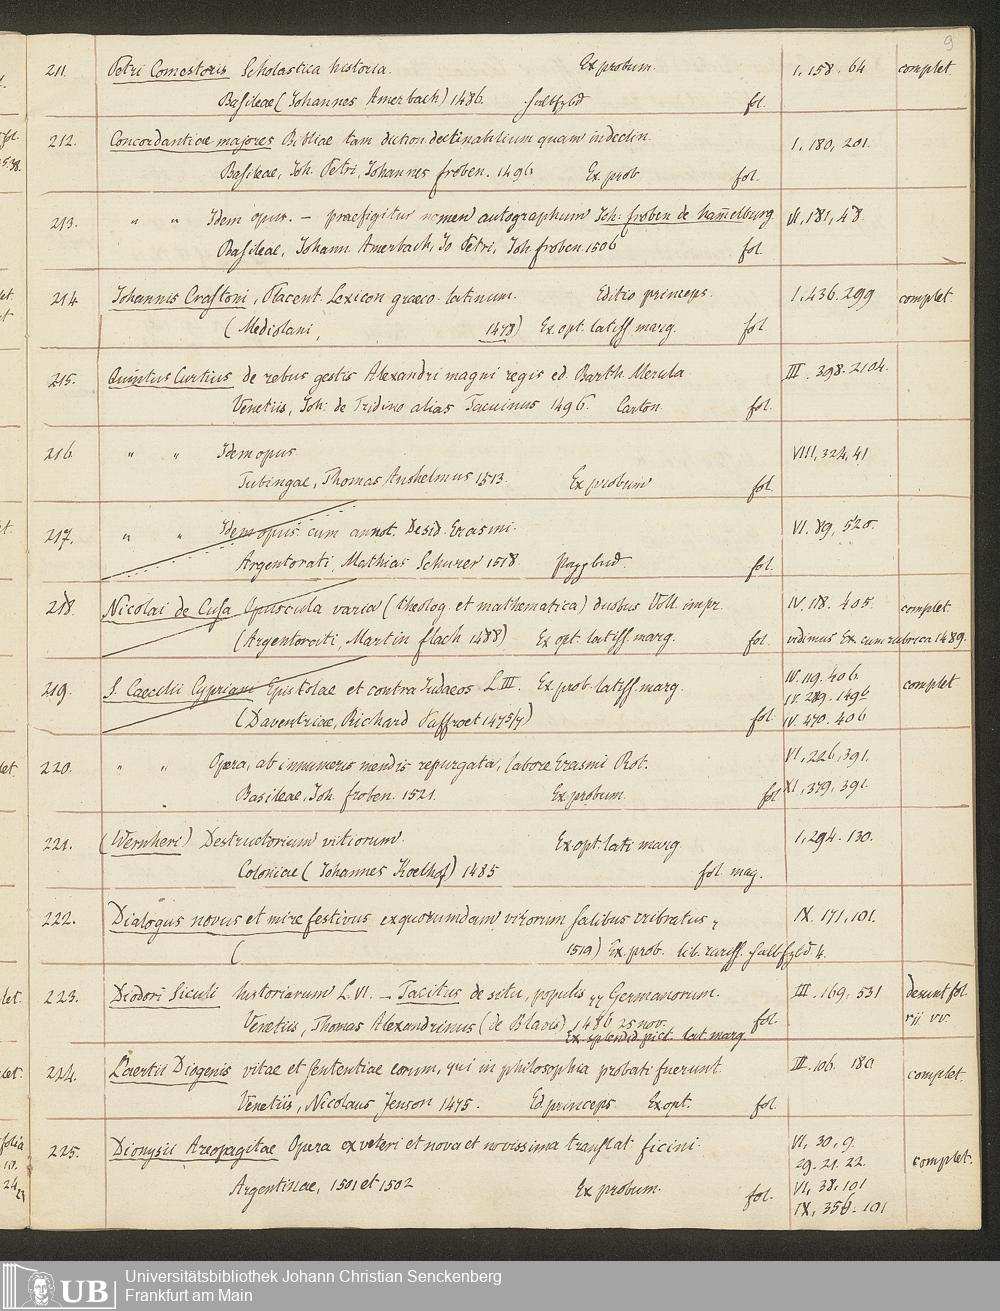 9
211. Petri Comestoris Scholastica historia. Ex probum. I, 158. 64 complet.
Basileae (Johannes Amerbach) 1486. halbfzbd fol.
212. Concordantiae majores Bibliae tam diction. declinabilium quam indeclin. I, 180, 201.
Basileae, Joh. Petri, Johannes froben. 1496 Ex. prob fol.
213. " " Idem opus. – praefigitur nomen autographum Joh: froben de ham̄elburg VI, 181, 48
Basileae, Johann Amerbach, Jo Petri, Joh froben. 1506 fol.
214 Johannis Crastoni, Placent. Lexicon graeco-latinum. Editio princeps. I. 436. 299 complet.
(Mediolani, 1478) Ex. opt. latiss. marg. fol.
215. Quintus Curtius de rebus gestis Alexandri magni regis ed. Barth. Merula III. 398. 2104.
Venetiis, Joh: de Tridino alias Tacuinus 1496. Carton. fol.
216 " " Idem opus VIII, 324, 41
Tubingae, Thomas Anshelmus 1513. Ex probum fol.
217. " " Idem opus cum annot. Desid. Erasmi. VI. 89, 520.
Argentorati, Mathias Schurer 1518. Pappbd. fol.
218. Nicolai de Cusa Opuscula varia (theolog. et mathematica) duobus Voll. impr. IV. 118. 405. complet
(Argentorati, Martin flach 1488) Ex opt. latiss. marg. fol. vidimus Ex. cum rubrica 1489.
219. S. Caecilii Cypriani Epistolae et contra Judaeos L. III. Ex. prob. latiss. marg. IV. 119. 406. complet
IV. 289. 1496
(Daventriae, Richard Paffroet 1475/7) fol IV. 470. 406
220. " " Opera, ab innumeris mendis repurgata, labore Erasmi Rot. VI, 226, 391.
Basileae, Joh. froben. 1521. Ex probum. fol XI, 379, 391.
221. (Wernheri) Destructorium vitiorum. Ex opt. lati marg. I, 294. 130.
Coloniae (Johannes Koelhof) 1485 fol. mag.
222. Dialogus novus et mire festivus ex quorumdam virorum salibus cribratus, IX. 171, 101.
( 1519) Ex. prob. lib. rariss. halbfzbd 4.
223. Diodori Siculi historiarum L. VI. – Tacitus de situ, populis Germanorum. III. 169, 531 desunt fol.
Venetiis, Thomas Alexandrinus (de Blavis) 1486 25 nov. fol. rii. vv.
Ex. splendid. pict. lat. marg.
224. Laertii Diogenis vitae et sententiae eorum, qui in philosophia probati fuerunt. III. 106. 180. complet.
Venetiis, Nicolaus Jenson 1475. Ed. princeps Ex opt. fol.
225. Dionysii Areopagitae Opera ex veteri et nova et novissima translat. ficini VI, 30, 9 complet.
29. 21. 22.
Argentinae, 1501 et 1502 Ex probum. fol. VI, 38, 101
IX, 356. 101
UB Universitätsbibliothek Johann Christian Senckenberg
Frankfurt am Main